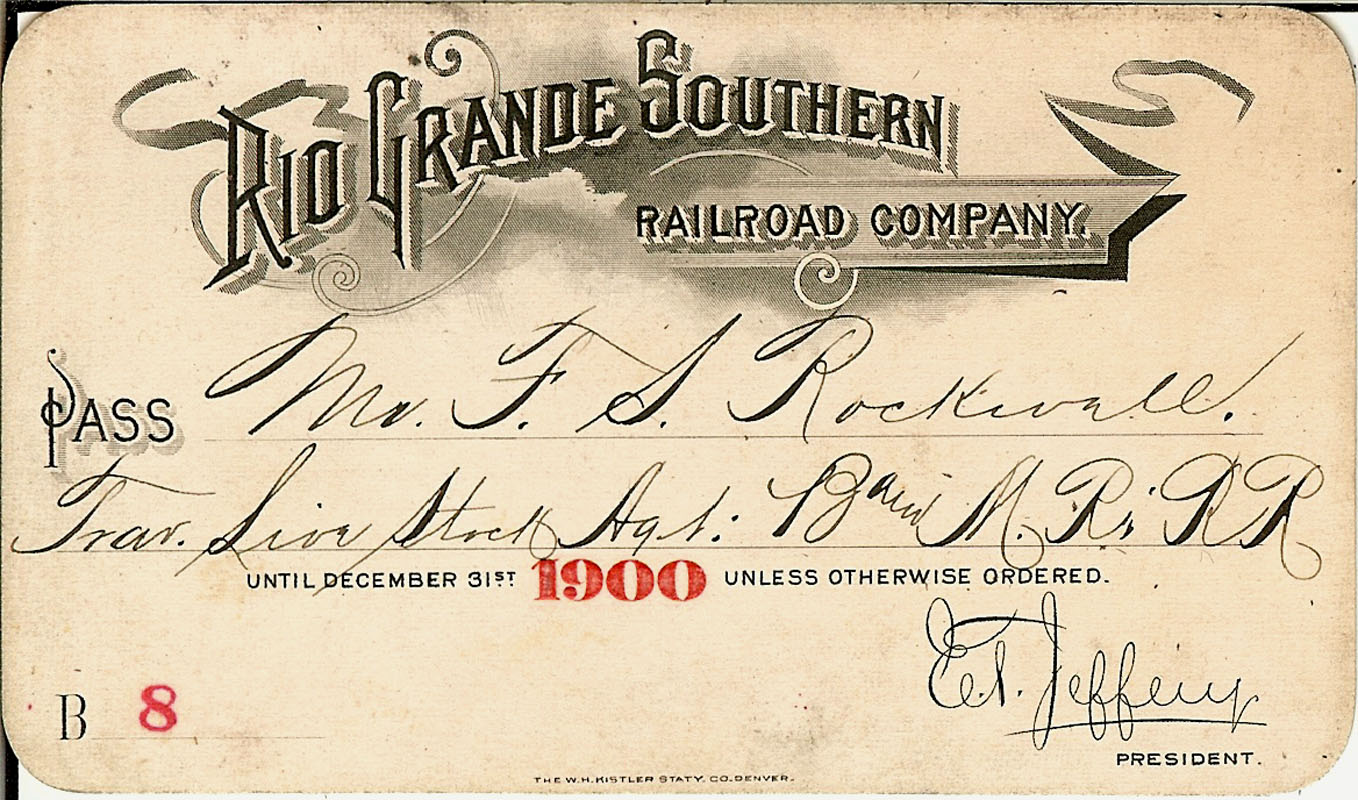 RIO GRANDE SOUTHERN
RAILROAD COMPANY.
PASS Mr. F. S. Rockwall.
Trav. Live Stock Agt. B and M. R. RR
UNTIL DECEMBER 31ST 1900 UNLESS OTHERWISE ORDERED.
E.T. Jeffery
PRESIDENT.
B 8
THE W.H. KISTLER STATY. CO. DENVER.